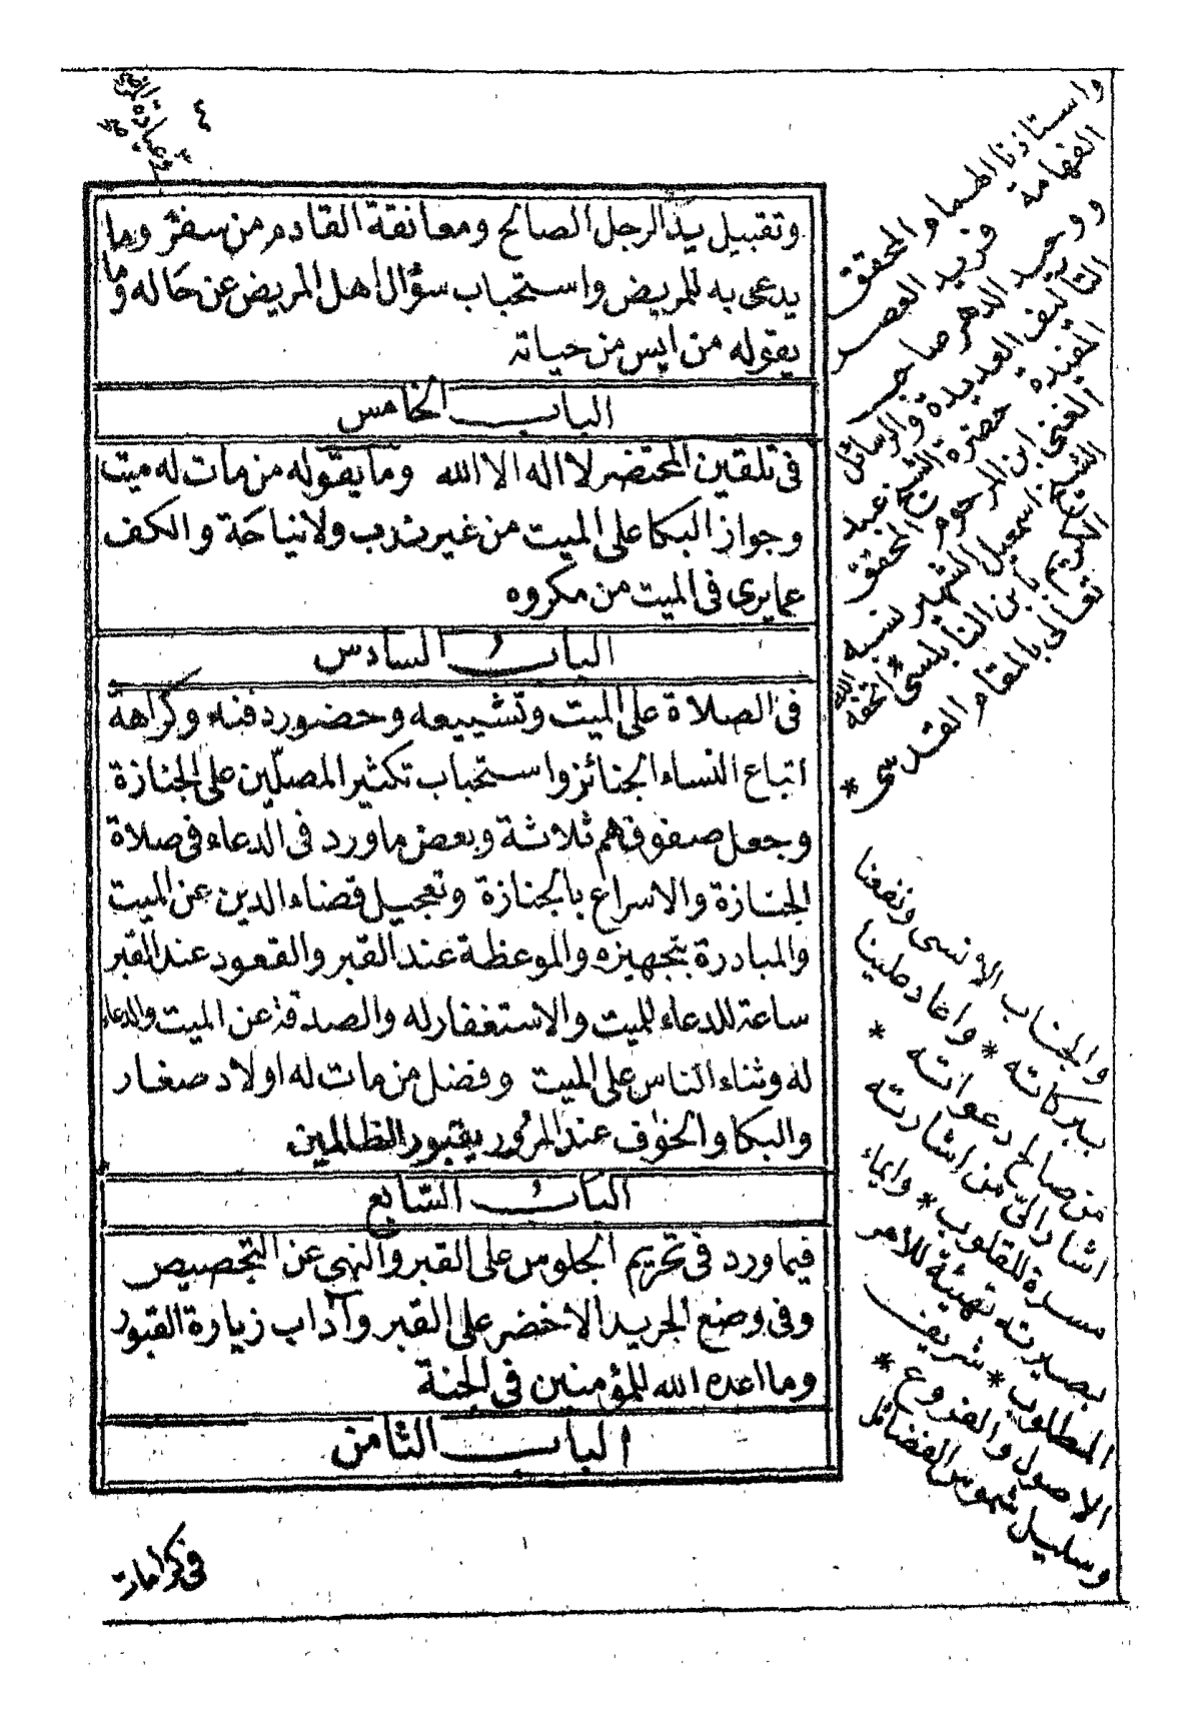 ٤
وعيادة
وتقبيل يد الرجل الصالح ومعانقة القادم من سفر وما
يدعى به للمريض واستحباب سؤال اهل المريض عن حاله وما
يقوله من ايس من حياته
الباب الخامس
فى تلقين المحتضر لا اله الا الله وما يقوله من مات له ميت
وجواز البكا على الميت من غير ندب ولا نياحة والكف
عما يرى فى الميت من مكروه
الباب السادس
فى الصلاة على الميت وتشييعه وحضور دفنه وكراهة
اتباع النساء الجنائز واستحباب تكثير المصلّين على الجنازة
وجعل صفوفهم ثلاثة وبعض ما ورد فى الدعاء فى صلاة
الجنازة والاسراع بالجنازة وتعجيل قضاء الدين عن الميت
والمبادرة بتجهيزه والموعظة عند القبر والقعود عند القبر
ساعة للدعاء للميت والاستغفار له والصدقة عن الميت والدعاء
له وثناء الناس على الميت وفضل من مات له اولاد صغار
والبكا والخوف عند المرور بقبور الظالمين
الباب السّابع
فيما ورد فى تحريم الجلوس على القبر والنهي عن التجصيص
وفى وضع الجريد الاخضر على القبر وآداب زيارة القبور
وما اعده الله للمؤمنين فى الجنة
الباب الثامن
فى كرامات
واستاذنا الهمام والمحقق
الفهامة فريد العصر
ووحيد الدهر صاحب
التاليف العديدة والرسائل
المفيدة حضرة الشيخ عبد
الغنى ابن المرحوم المحقق
الشيخ اسمعيل الشهير نسبه
الكريم بابن النابلسى * اتحفه الله
تعالى بالمقام القدسى *
والجناب الانسى ونفعنا
ببركاته * واعاد علينا
من صالح دعواته *
اشار الىّ من اشارته
مسرة للقلوب * وايماء
بصلاته تهيئة للامر
المطلوب * شريف
الاصول والفروع *
وسليل شموس الفضائل